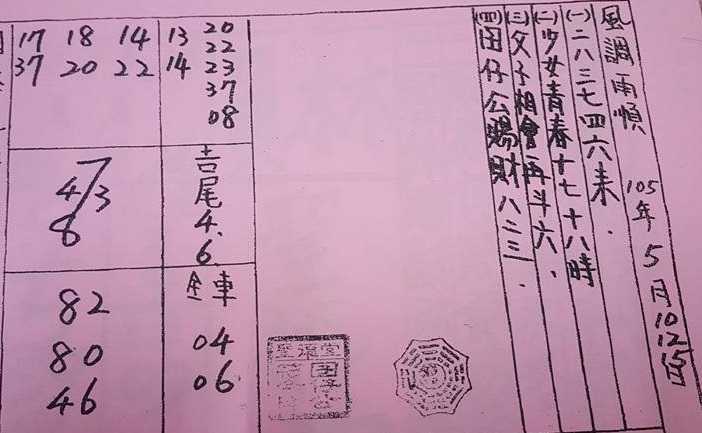 風調雨順 105年5月10 12 15
(一)二八三七四六来.
(二)少女青春十七十八時
(三)父子相會再斗六、
(四)田仔公賜財八三三.
20
13 22
14 23
37
08
17 18 14
37 20 22
吉尾4.6.
7
4/3
8
全車
04
06
82
80
46